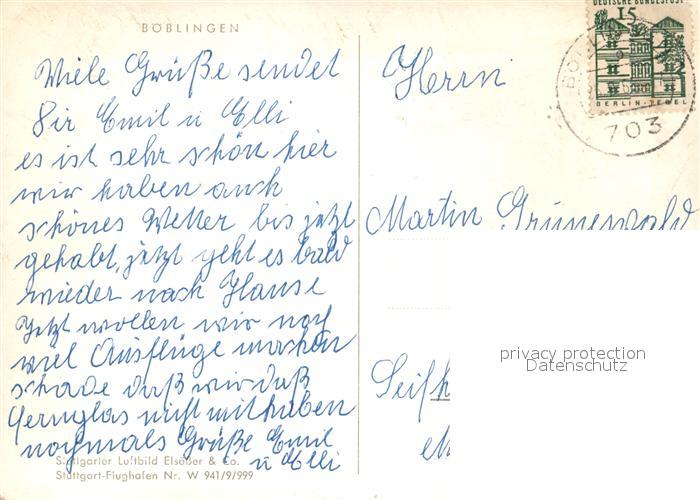 BÖBLINGEN
Viele Grüße sendet
Dir Emil u Elli
es ist sehr schön hier
wir haben auch
schönes Wetter bis jetzt
gehabt, jetzt geht es bald
wieder nach Hause
Jetzt wollen wir noch
viel Ausflüge machen
schade daß wir daß
Fernglas nicht mit haben
nochmals Grüße Emil
u Elli
Stuttgarter Luftbild Elsäßer & Co.
Stuttgart-Flughafen Nr. W 941/9/999
DEUTSCHE BUNDESPOST
15
BERLIN-TEGEL
703
Herrn
Martin Grünewald
privacy protection
Datenschutz